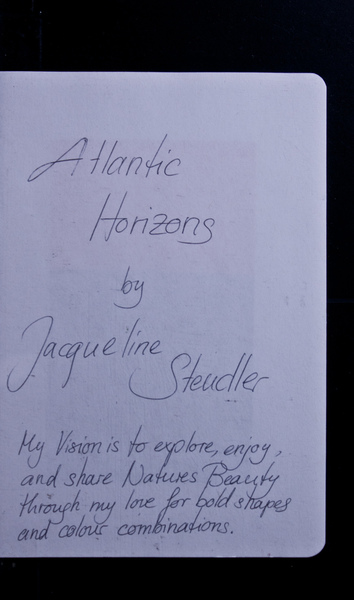 Atlantic
Horizons
by
Jacqueline
Steudler
My Vision is to explore, enjoy,
and share Natures Beauty
through my love for bold shapes
and colour combinations.